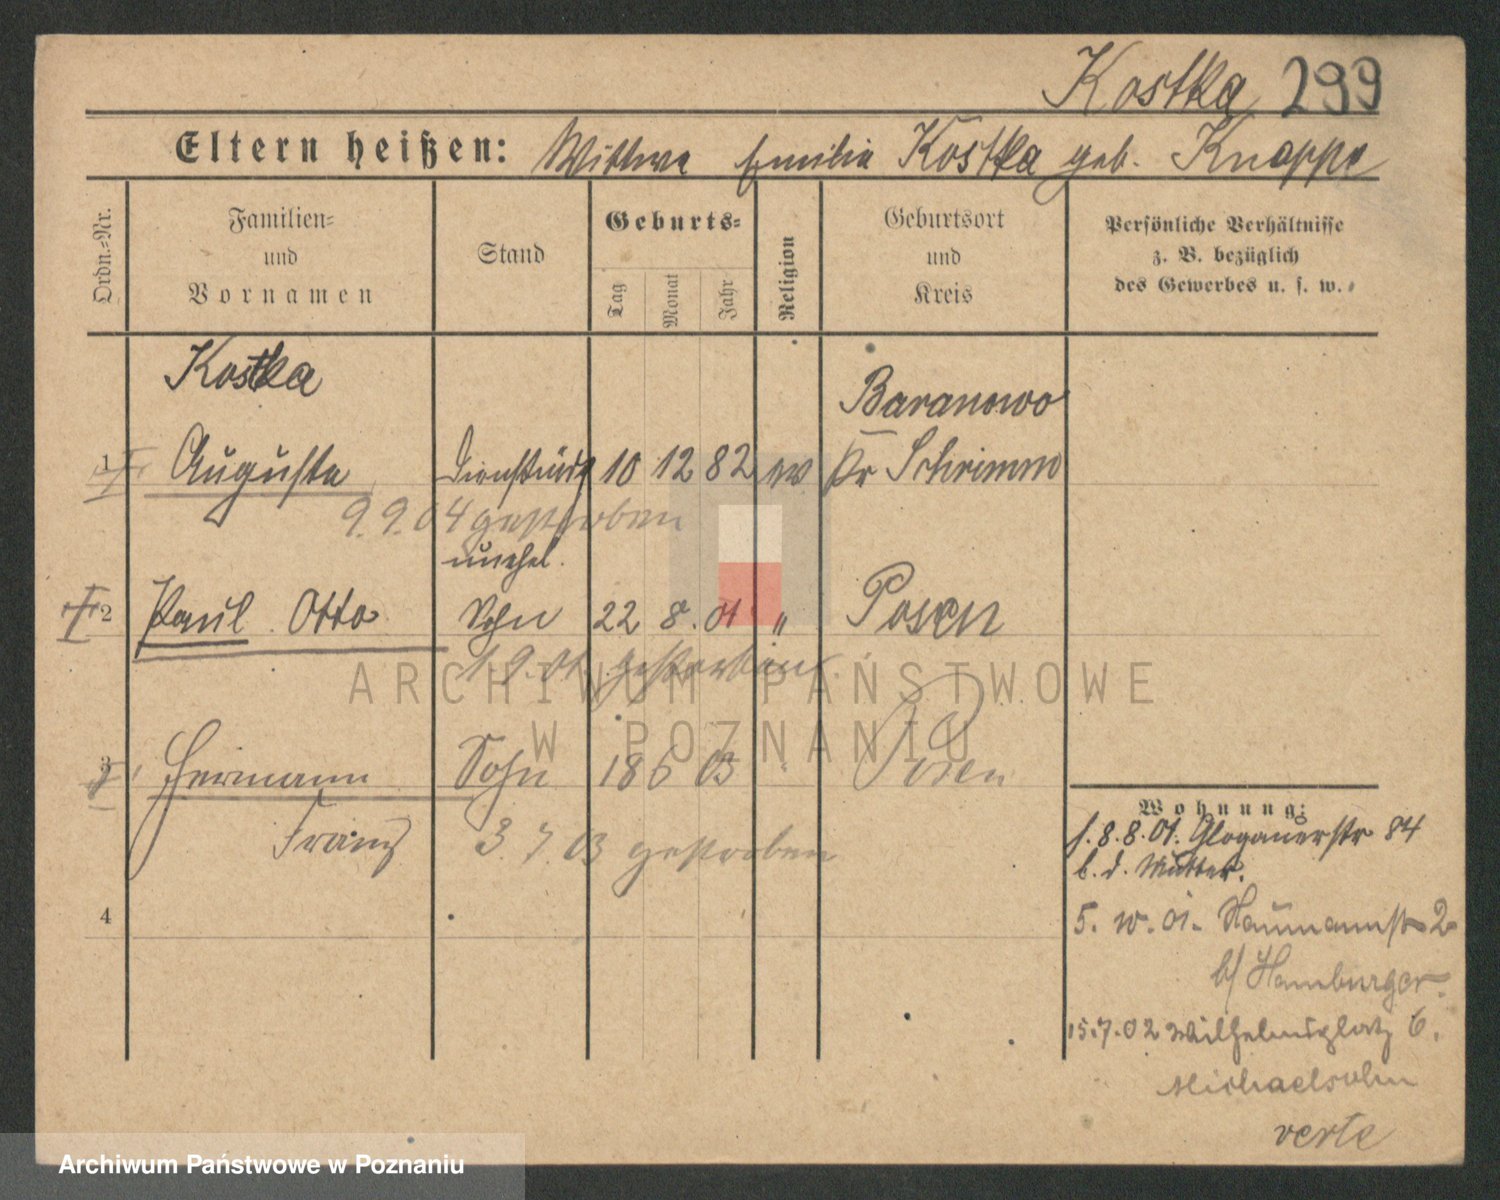 Kostka 299
Eltern heißen: Wittwe Emilia Kostka geb. Knappe
Ordn.-Nr.
Familien-
und
Vornamen
Stand
Geburts-
Tag
Monat
Jahr
Religion
Geburtsort
und
Kreis
Persönliche Verhältnisse
z. B. bezüglich
des Gewerbes u. s. w.
Kostka
Baranowo
1 Auguste 10 12 82 ev Kr Schrimm
9.9.04 gestorben
unehel.
2 Paul Otto Sohn 22 8. 01 " Posen
1 9. 01. gestorben
ARCHIWUM PAŃSTWOWE
W POZNANIU
3 Hermann Sohn 18 6 03 " Posen
Franz 3. 7. 03 gestorben
4
Wohnung:
f. 8.8.01. Glogauerstr 84
b. d. Mutter.
5. 10. 01. Naumannstr 2
b/ Hamburger.
15.7.02 Wilhelmsplatz 6.
Michaelsohn
verte
Archiwum Państwowe w Poznaniu